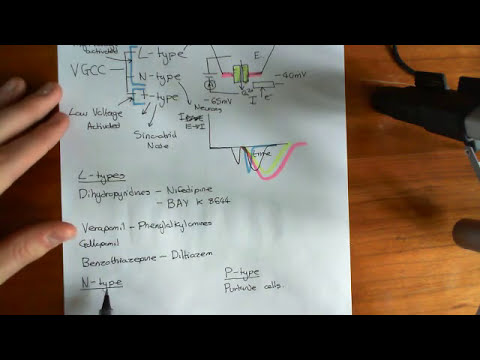 activated
L-type
VGCC
N-type
T-type
Low Voltage
Activated
Sinoatrial
Node
Neurons
E.
-40mV
-65mV
I
e-
I
E-VI
time
L-types
Dihydropyridines - Nifedipine
- BAY K 8644
Verapamil - Phenylalkylamines
Gallopamil
Benzothiazepine - Diltiazem
N-type
P-type
Purkinje cells.